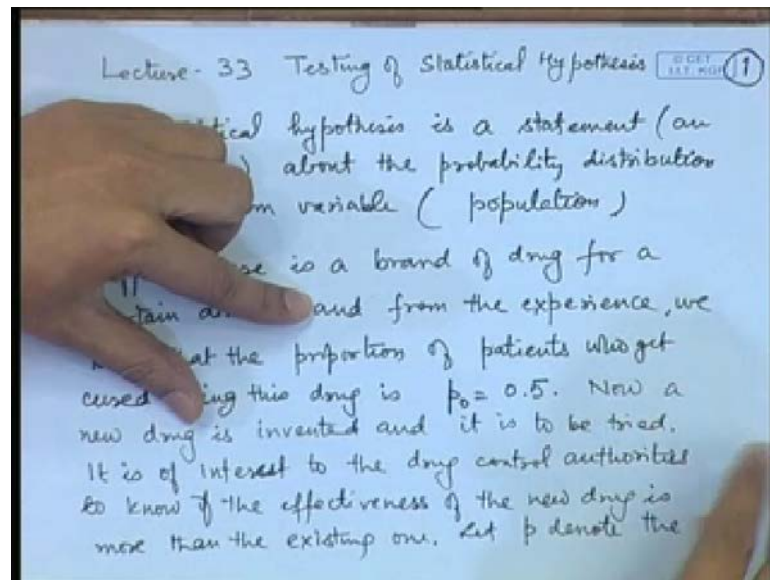 Lecture - 33 Testing of Statistical Hypothesis © CET I.I.T. KGP 1
tical hypothesis is a statement (an
) about the probability distribution
m variable ( population )
se is a brand of drug for a
tain and from the experience, we
at the proportion of patients who get
cured ing this drug is p₀ = 0.5. Now a
new drug is invented and it is to be tried.
It is of interest to the drug control authorities
to know if the effectiveness of the new drug is
more than the existing one. Let p denote the